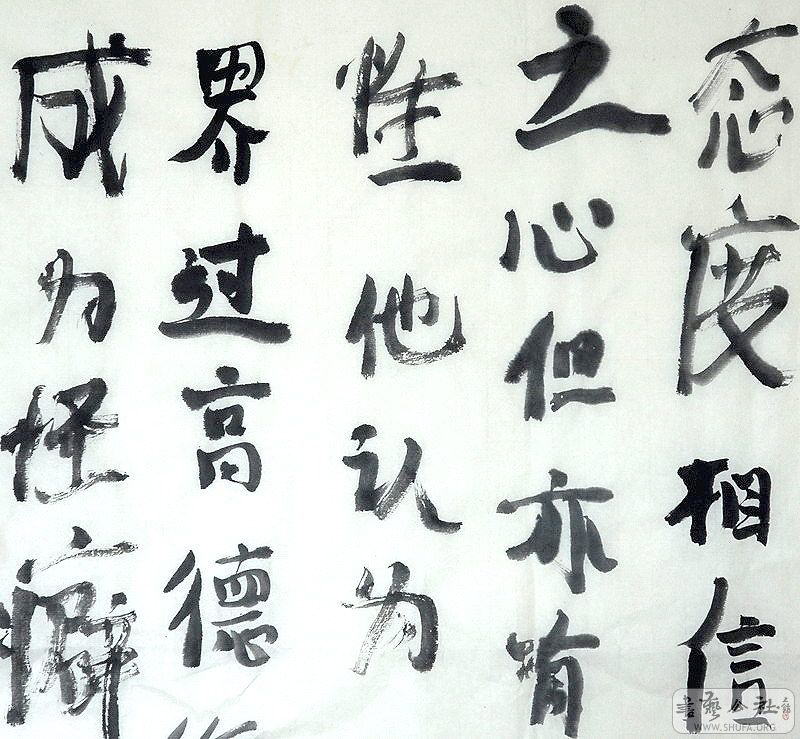 态度相信
之心但亦
性他认为
界过高德
成为怪癖
書藝公社
WWW.SHUFA.ORG